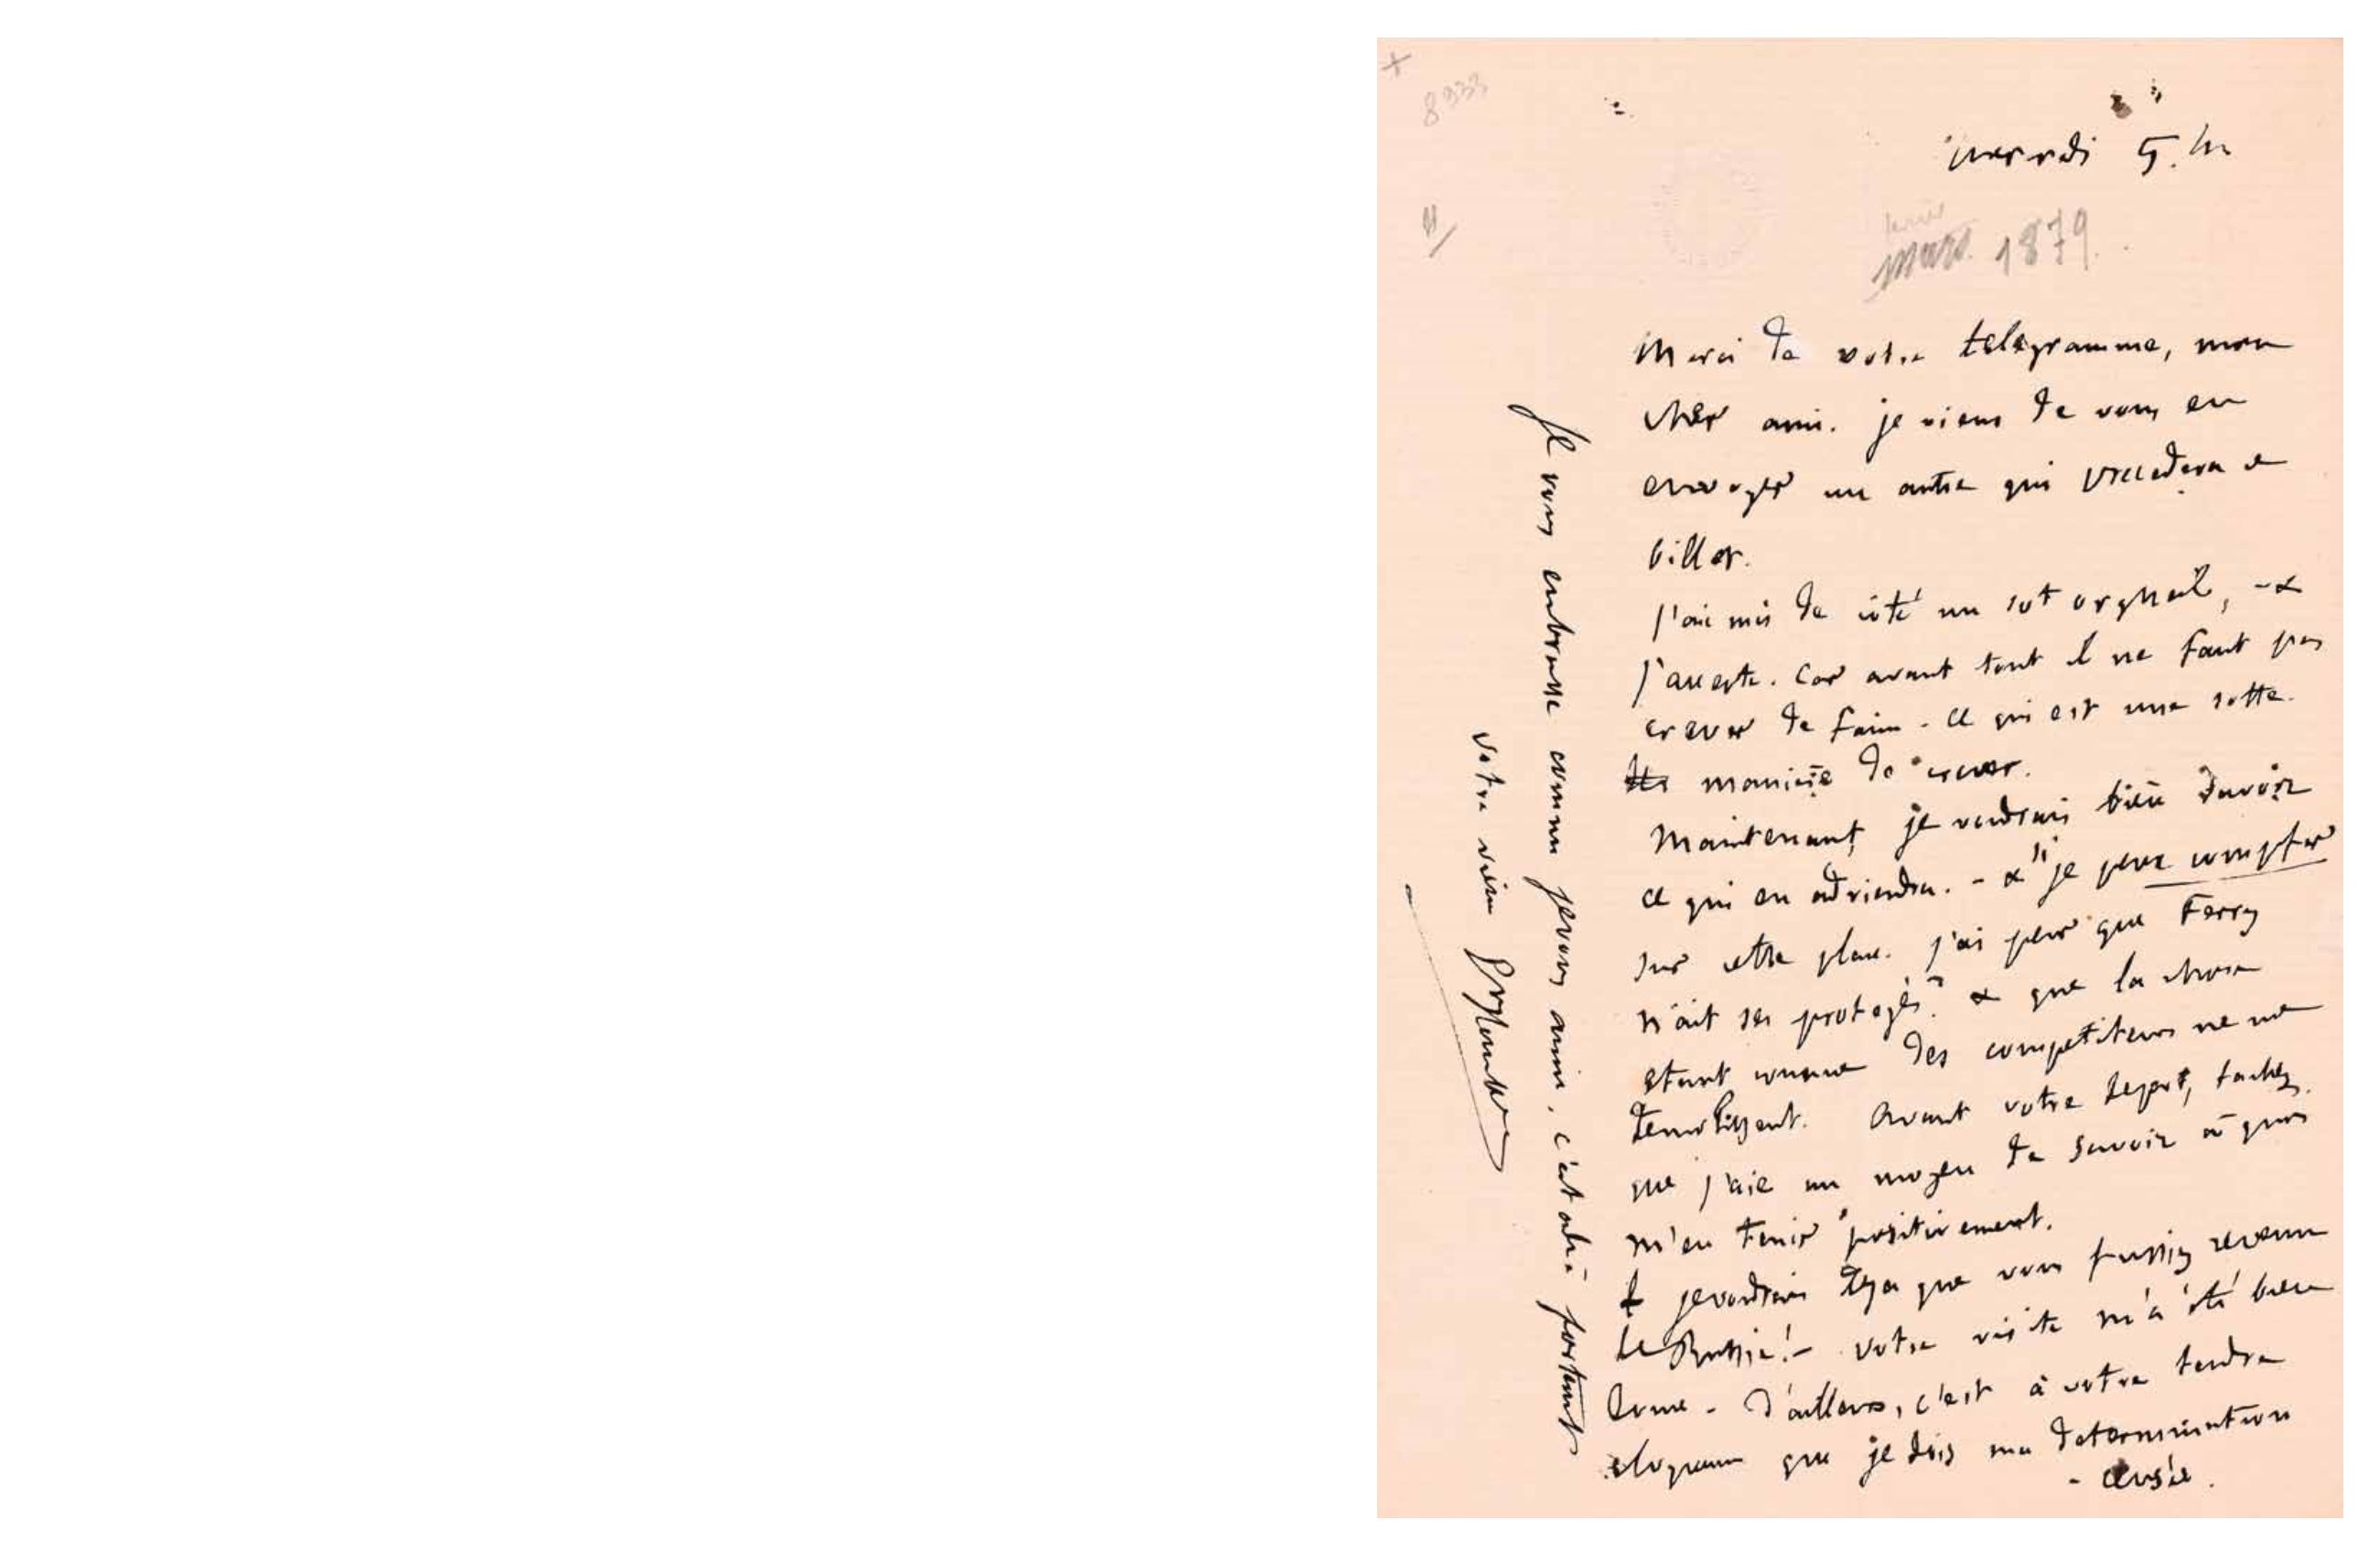 8933
mercredi 5. h
mars. 1879.
Merci de votre telegramme, mon
cher ami. je viens de vous en
envoyer un autre qui precedera ce
billet.
J'ai mis de côté un sot orgueil, - &
j'accepte. Car avant tout il ne faut pas
crever de faim - ce qui est une sotte
maniere de crever.
Maintenant, je voudrais bien savoir
ce qui en adviendra. - & si je peux compter
sur cette place. j'ai peur que Ferry
n'ait ses protegés? & que la chose
etant connue des competiteurs ne me
demolissent. Avant votre depart, tachez
que j'aie un moyen de savoir à quoi
m'en tenir positivement.
je voudrais deja que vous fussiez revenu
de Russie! - Votre visite m'a été bien
bonne - D'ailleurs, c'est à votre tendre
eloquence que je dois ma determination
- censée.
Je vous embrasse comme je vous aime, c'est à dire fortement
votre vieux